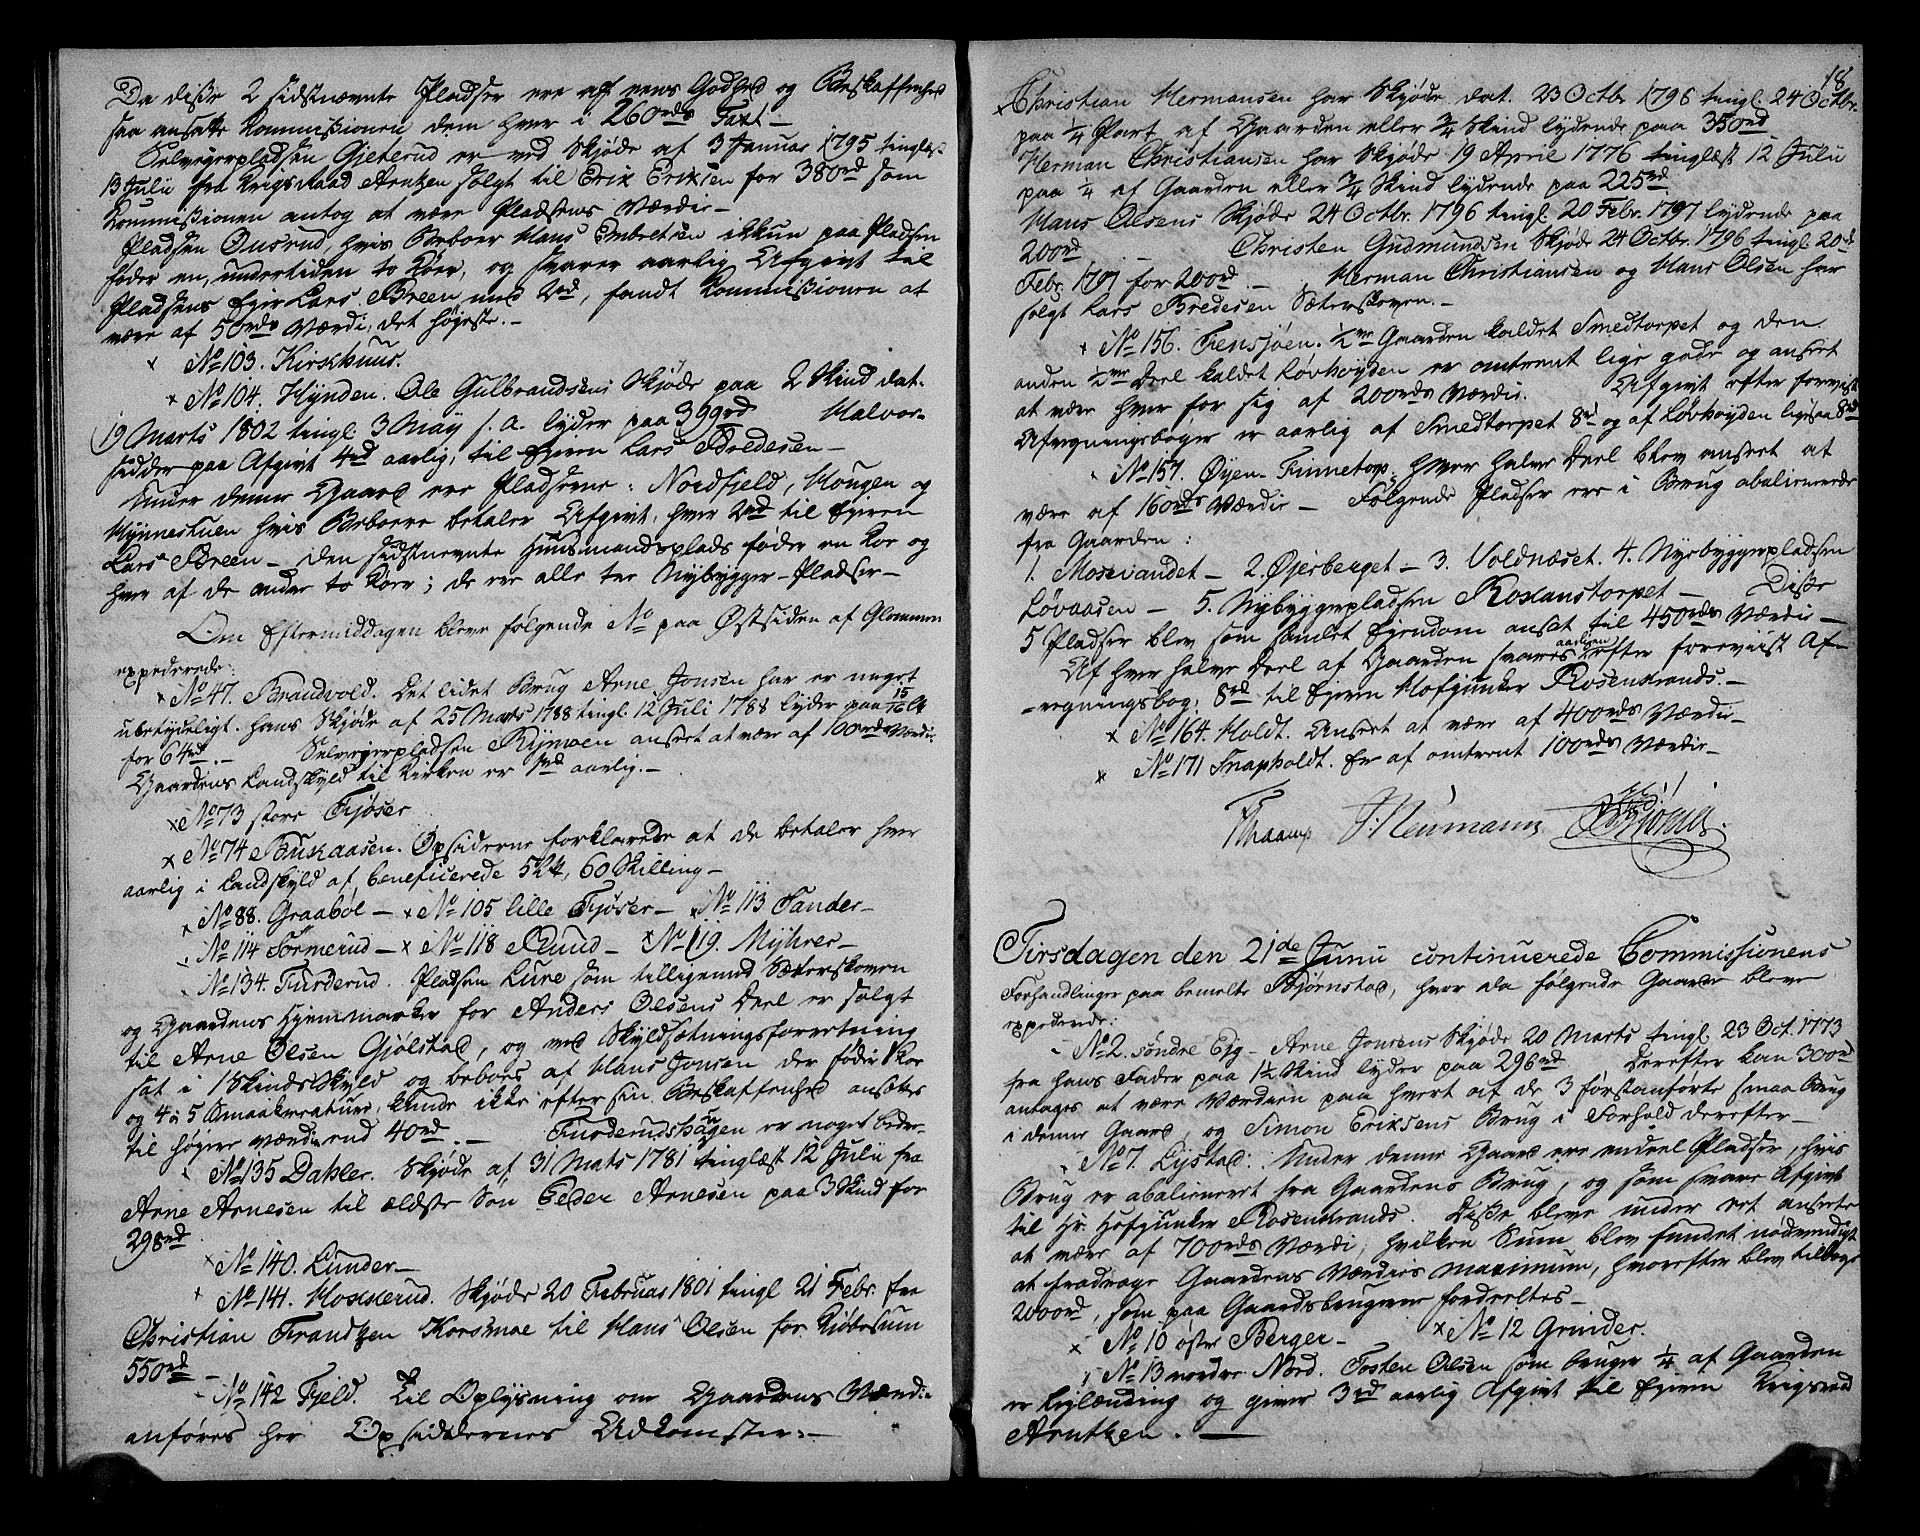 Da disse 2 sidstnævnte Pladser ere af eens Godhed og Beskaffenhed
saa ansatte Kommissionen dem hver i 260rds Taxt –
Selveigerpladsen Gjeterud er ved Skjøde af 3 Januar 1795 tinglæst
13 Julii fra Krigsraad Arntzen solgt til Erik Eriksen for 380rd som
Kommissionen antog at være Pladsens Værdie –
Pladsen Ousrud, hvis Beboer Hans Embretsen ikkun paa Pladsen
føder en, undertiden to Køer, og svarer aarlig Afgivt til
Pladsens Ejer Lars Breen med 2rd, fandt Kommissionen at
være af 50rds Værdi, det højeste. –
× No 103. Kirkhuus.
× No 104. Hynden. Ole Gulbrandsens Skjøde paa 2 Skind dat.
19 Marts 1802 tingl. 3 May s. a. lyder paa 399rd Halvor
sidder paa Afgivt 4rd aarlig, til Ejeren Lars Bredesen –
Under denne Gaard ere Pladserne: Nordfjeld, Hougen og
Hynnestuen hvis Beboere betaler Afgivt, hver 2rd til Ejeren
Lars Breen – den sidstnevnte Huusmandsplads føder en Koe og
hver af de andre to Køer; de ere alle tre Nybygger-Pladser –
Om Eftermiddagen bleve følgende No paa Østsiden af Glommen
expederede:
× No 47. Brandvold. Det lidet Brug Arne Jonsen har er meget
ubetydeligt. hans Skjøde af 25 Marts 1788 tingl. 12 Juli 1788 lyder paa 15/16
for 64rd. – Selveigerpladsen Rijmoen anseet at være af 100rds Værdie
Gaardens Landskyld til Kirken er 1rd aarlig. –
× No 73 store Tjøser
× No 74 Buskaasen. Opsidderne forklarede at de betaler hver
aarlig i Landskyld af beneficerede 60 Skilling –
× No 88. Graabøl – × No 105 lille Tjøser – × No 113 Tander –
No 114 Tørmerud – × No 118 Ruud – × No 119. Myhrer –
No 134. Furderud. Pladsen Lune som tilligemed Sæterskoven
og Gaardens Hjemmarker for Anders Olsens Deel er solgt
til Arne Olsen Gjølstad, og ved Skyldsætningsforretning
sat i 1 Skinds Skyld og beboes af Hans Jonsen der føder 1 Koe
og 4 à 5 Smaakreature, kunde ikke efter sin Beskaffenhed ansættes
til højere Værdie end 40rd. – Furderudshagen er noget bedre –
No 135 Dahler. Skjøde af 31 Mats 1781 tinglæst 12 Julii fra
Arne Arnesen til ældste Søn Peder Arnesen paa 3 Skind for
298rd.
× No 140. Lunder –
× No 141. Hokkerud. Skjøde 20 Februar 1801 tingl 21 Febr. fra
Christian Frandtzen Korsmoe til Hans Olsen for Kjøbesum
550rd –
No 142 Fjeld. Til Oplysning om Gaardens Værdie
anføres her Opsiddernes Adkomster: –
18
× Christian Hermansen har Skjøde dat. 23 Octbr 1796 tingl. 24 Octbr.
paa 1/4 Part af Gaarden eller 3/4 Skind lydende paa 350rd
Herman Christiansen har Skjøde 19 April 1776 tinglæst 12 Julii
paa 1/4 af Gaarden eller 3/4 Skind lydende paa 225rd.
Hans Olsens Skjøde 24 Octbr. 1796 tingl. 20 Febr. 1797 lydende paa
200rd – Christen Gudmundsen Skjøde 24 Octbr. 1796 tingl 20de
Febr. 1797 for 200rd. – Herman Christiansen og Hans Olsen har
solgt Lars Bredesen Sæterskoven. –
× No 156. Tensjøen. 1/2ve Gaarden kaldet Smedtorpet og den
anden 1/2ve Deel kaldet Løvhøyden er omtrent lige gode og anseet
at være hver for sig af 200rds Værdie. Afgivt efter foreviist
Afregningsbøger er aarlig af Smedtorpet 8rd og af Løvhøyden ligesaa 8rd
No 157. Øyen Finnetorp; hver halve Deel blev anseet at
være af 160rds Værdie – Følgende Pladser ere i Brug abalienerede
fra Gaarden:
1. Mosevandet – 2. Øjerberget – 3. Voldnæset. 4. Nyebyggerpladsen
Løvaasen – 5. Nybyggerpladsen Roxanstorpet – Disse
5 Pladser blev som samlet Ejendom ansat til 450rds Værdie –
Af hver halve Deel af Gaarden svares aarligen efter foreviist Af-
regningsbog, 8rd til Ejeren Hofjunker Rosenkrands. –
× No 164. Holdt. Anseet at være af 400rds Værdie –
× No 171 Snapholdt. Er af omtrent 100rds Værdie –
Thraamp J. Neumann
Tirsdagen den 21de Junii continuerede Commissionens
Forhandlinger paa bemelte Bjørnstad, hvor da følgende Gaarde bleve
expederede:
No 2. søndre Ejg – Arne Jonsens Skjøde 20 Marts tingl. 23 Oct. 1773
fra hans Fader paa 1 1/2 Skind lyder paa 296rd Derefter kan 300rd
antages at være Værdien paa hvert af de 3 førstanførte smaa Brug
i denne Gaard, og Simon Eriksens Brug i Forhold derefter –
No 7. Lystad: Under denne Gaard ere endeel Pladser, hvis
Brug er abalieneret fra Gaardens Brug, og som svare Afgivt
til Hr. Hofjunker Rosenkrands. Disse bleve under eet ansatte
at være af 700rds Værdi, hvilken Sum blev fundet nødvendigt
at fradrage Gaardens Værdies maximum, hvorefter blev tilbage
2000rd, som paa Gaardsbrugerne fordeeltes –
× No 10 østre Berger – × No 12 Grinder.
No 13 nordre Nord. Tosten Olsen som bruger 1/4 af Gaarden
er Lejlænding og giver 3rd aarlig Afgivt til Ejeren Krigsraad
Arntzen. –